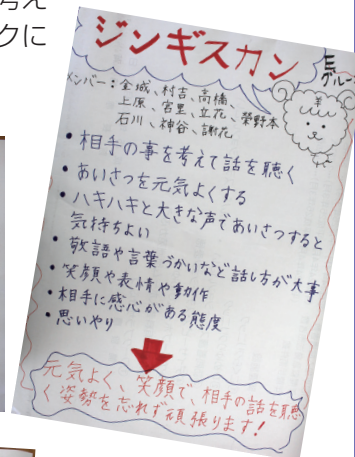 考え
クに
ジンギスカン
グループ
メンバー：金城、村吉、高橋
上原、宮里、立花、榮野本
石川、神谷、謝花
・相手の事を考えて話を聴く
・あいさつを元気よくする
・ハキハキと大きな声であいさつすると
気持ちよい
・敬語や言葉づかいなど話し方が大事
・笑顔や表情や動作
・相手に感心がある態度
・思いやり
元気よく、笑顔で、相手の話を聴
く姿勢を忘れず頑張ります！